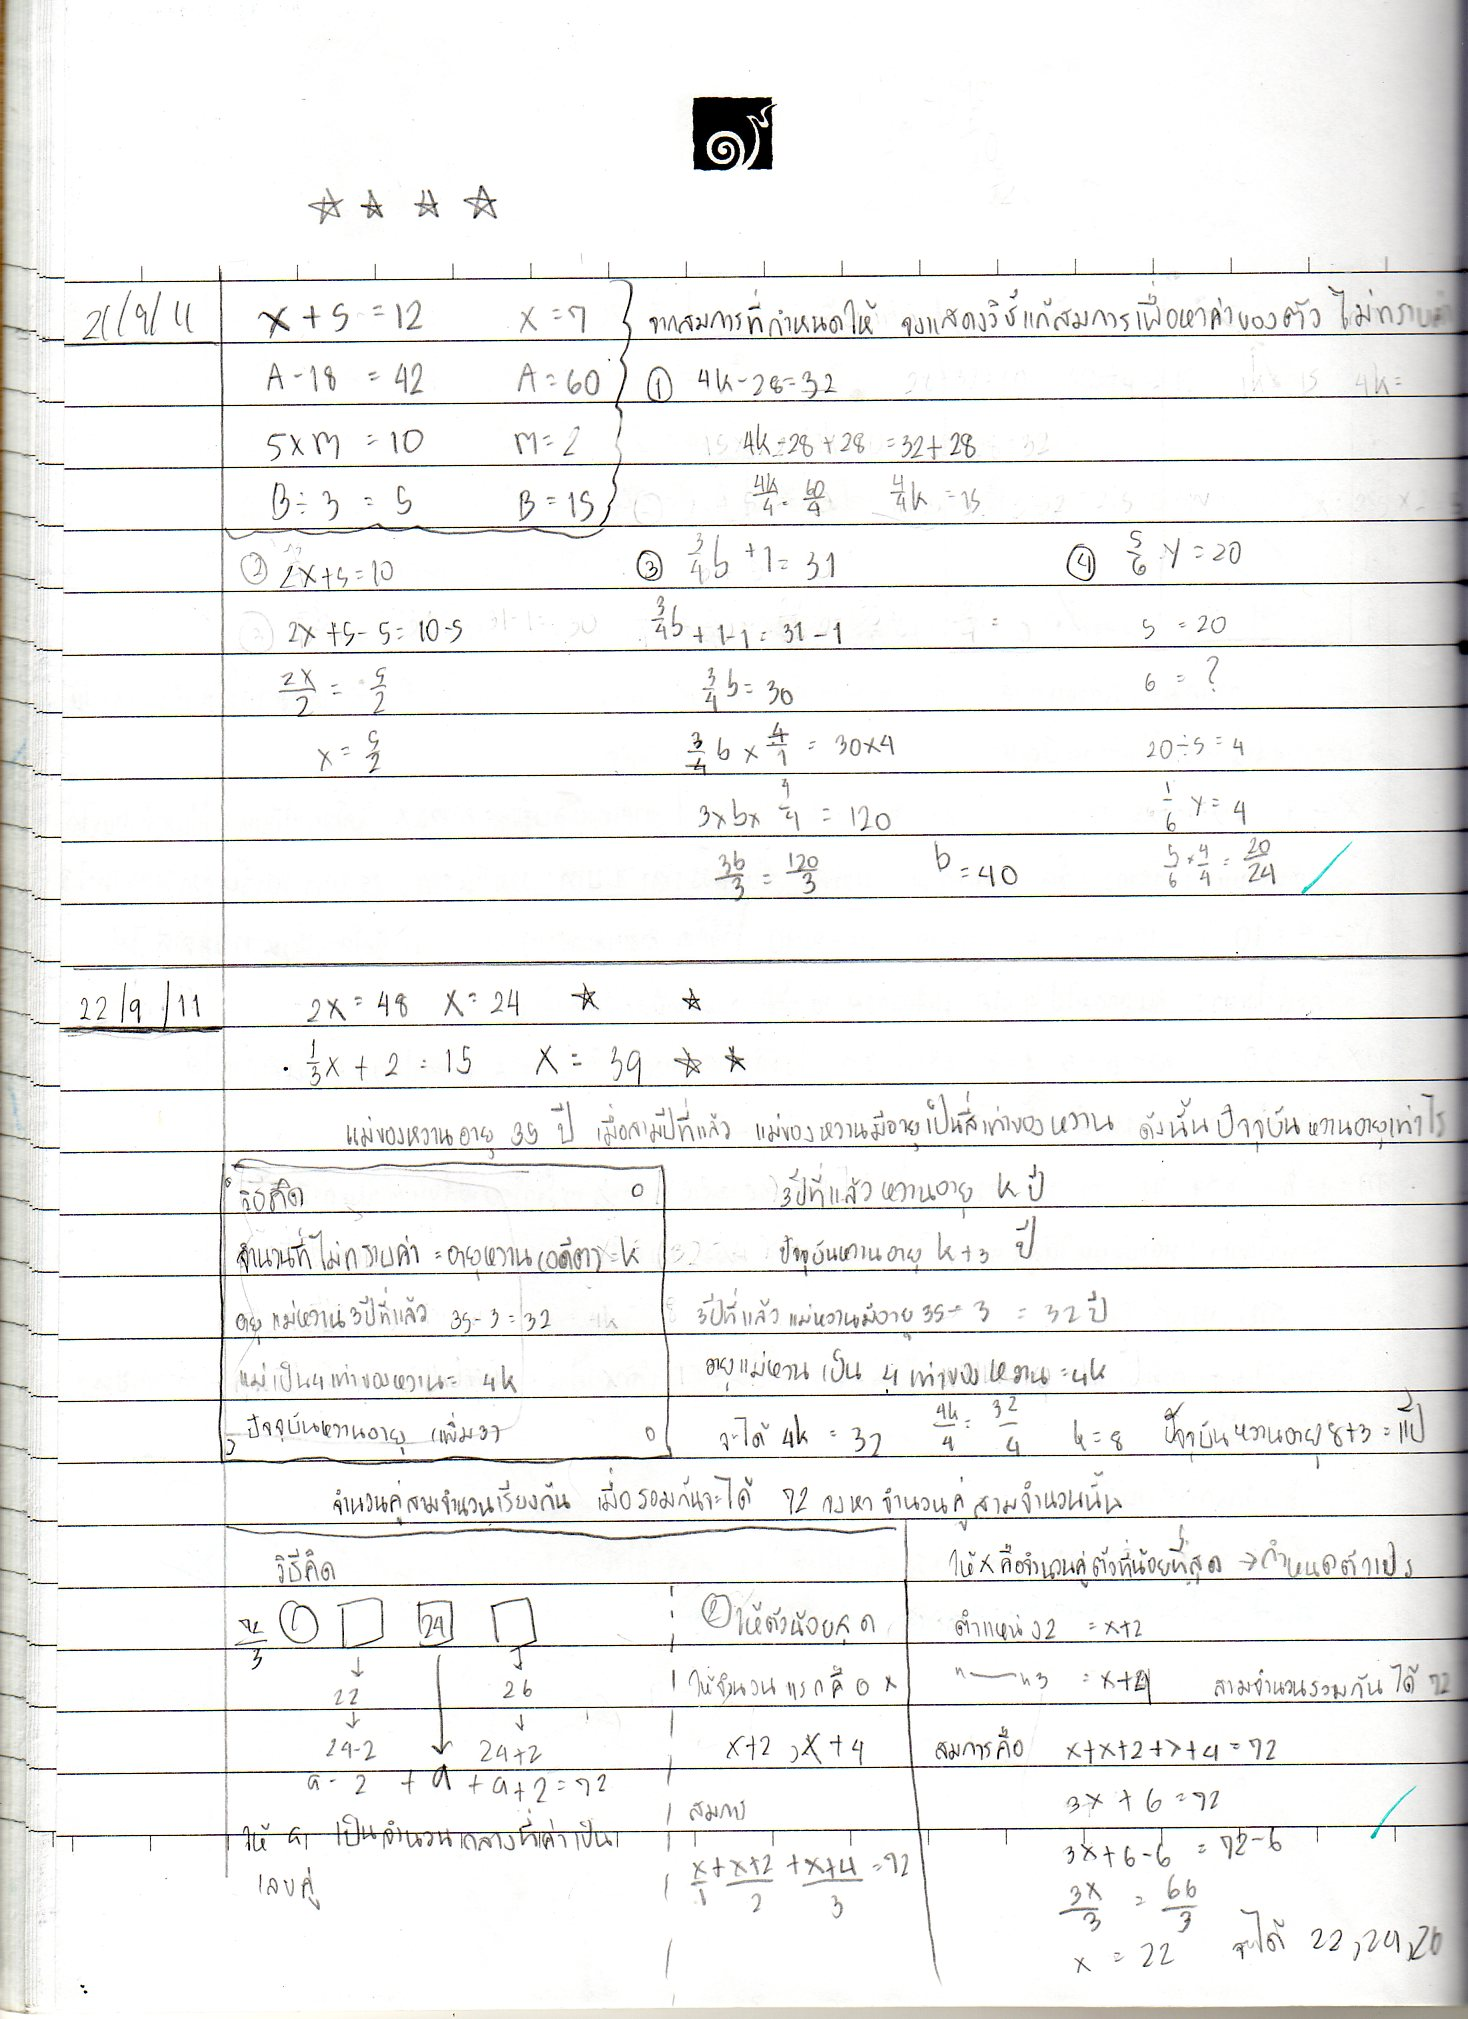 21/9/11
x + 5 = 12 x = 7
A - 18 = 42 A = 60
5 x m = 10 m = 2
B ÷ 3 = 5 B = 15
จากสมการที่กำหนดให้ จงแสดงวิธีแก้สมการเพื่อหาค่าของตัว ไม่ทราบค่า
① 4k - 28 = 32
4k - 28 + 28 = 32 + 28
4k/4 = 60/4 4/4 k = 15
② 2x + 5 = 10
2x + 5 - 5 = 10 - 5
2x/2 = 5/2
x = 5/2
③ 3/4 b + 1 = 31
3/4 b + 1 - 1 = 31 - 1
3/4 b = 30
3/4 b x 4/1 = 30 x 4
3 x b x 4/4 = 120
3b/3 = 120/3 b = 40
④ 5/6 y = 20
5 = 20
6 = ?
20 ÷ 5 = 4
1/6 y = 4
5/6 x 4/4 = 20/24
22/9/11
2x = 48 x = 24
1/3 x + 2 = 15 x = 39
แม่ของหวานอายุ 35 ปี เมื่อสามปีที่แล้ว แม่ของหวานมีอายุเป็นสี่เท่าของหวาน ดังนั้นปัจจุบันหวานอายุเท่าไร
วิธีคิด
จำนวนที่ไม่ทราบค่า = อายุหวาน (อดีต) = k
อายุแม่หวาน 3 ปีที่แล้ว 35 - 3 = 32
แม่เป็น 4 เท่าของหวาน = 4k
ปัจจุบันหวานอายุ (เพิ่ม 3)
3 ปีที่แล้วหวานอายุ k ปี
ปัจจุบันหวานอายุ k + 3 ปี
3 ปีที่แล้วแม่หวานมีอายุ 35 - 3 = 32 ปี
อายุแม่หวาน เป็น 4 เท่าของหวาน = 4k
จะได้ 4k = 32 4k/4 = 32/4 k = 8 ปัจจุบันหวานอายุ 8 + 3 = 11 ปี
จำนวนคู่สามจำนวนเรียงกัน เมื่อรวมกันจะได้ 72 จงหาจำนวนคู่สามจำนวนนั้น
วิธีคิด
72/3 ① 24
22 26
24-2 24+2
a - 2 + a + a + 2 = 72
ให้ a เป็นจำนวนกลางที่ค่าเป็น
เลขคู่
② ให้ตัวน้อยสุด
ให้จำนวนแรกคือ x
x + 2 , x + 4
สมการ
x/1 + x+2/2 + x+4/3 = 72
ให้ x คือจำนวนคู่ตัวที่น้อยที่สุด → กำหนดตัวแปร
ตำแหน่ง 2 = x + 2
" — " 3 = x + 4 สามจำนวนรวมกันได้ 72
สมการคือ x + x + 2 + x + 4 = 72
3x + 6 = 72
3x + 6 - 6 = 72 - 6
3x/3 = 66/3
x = 22 จะได้ 22, 24, 26